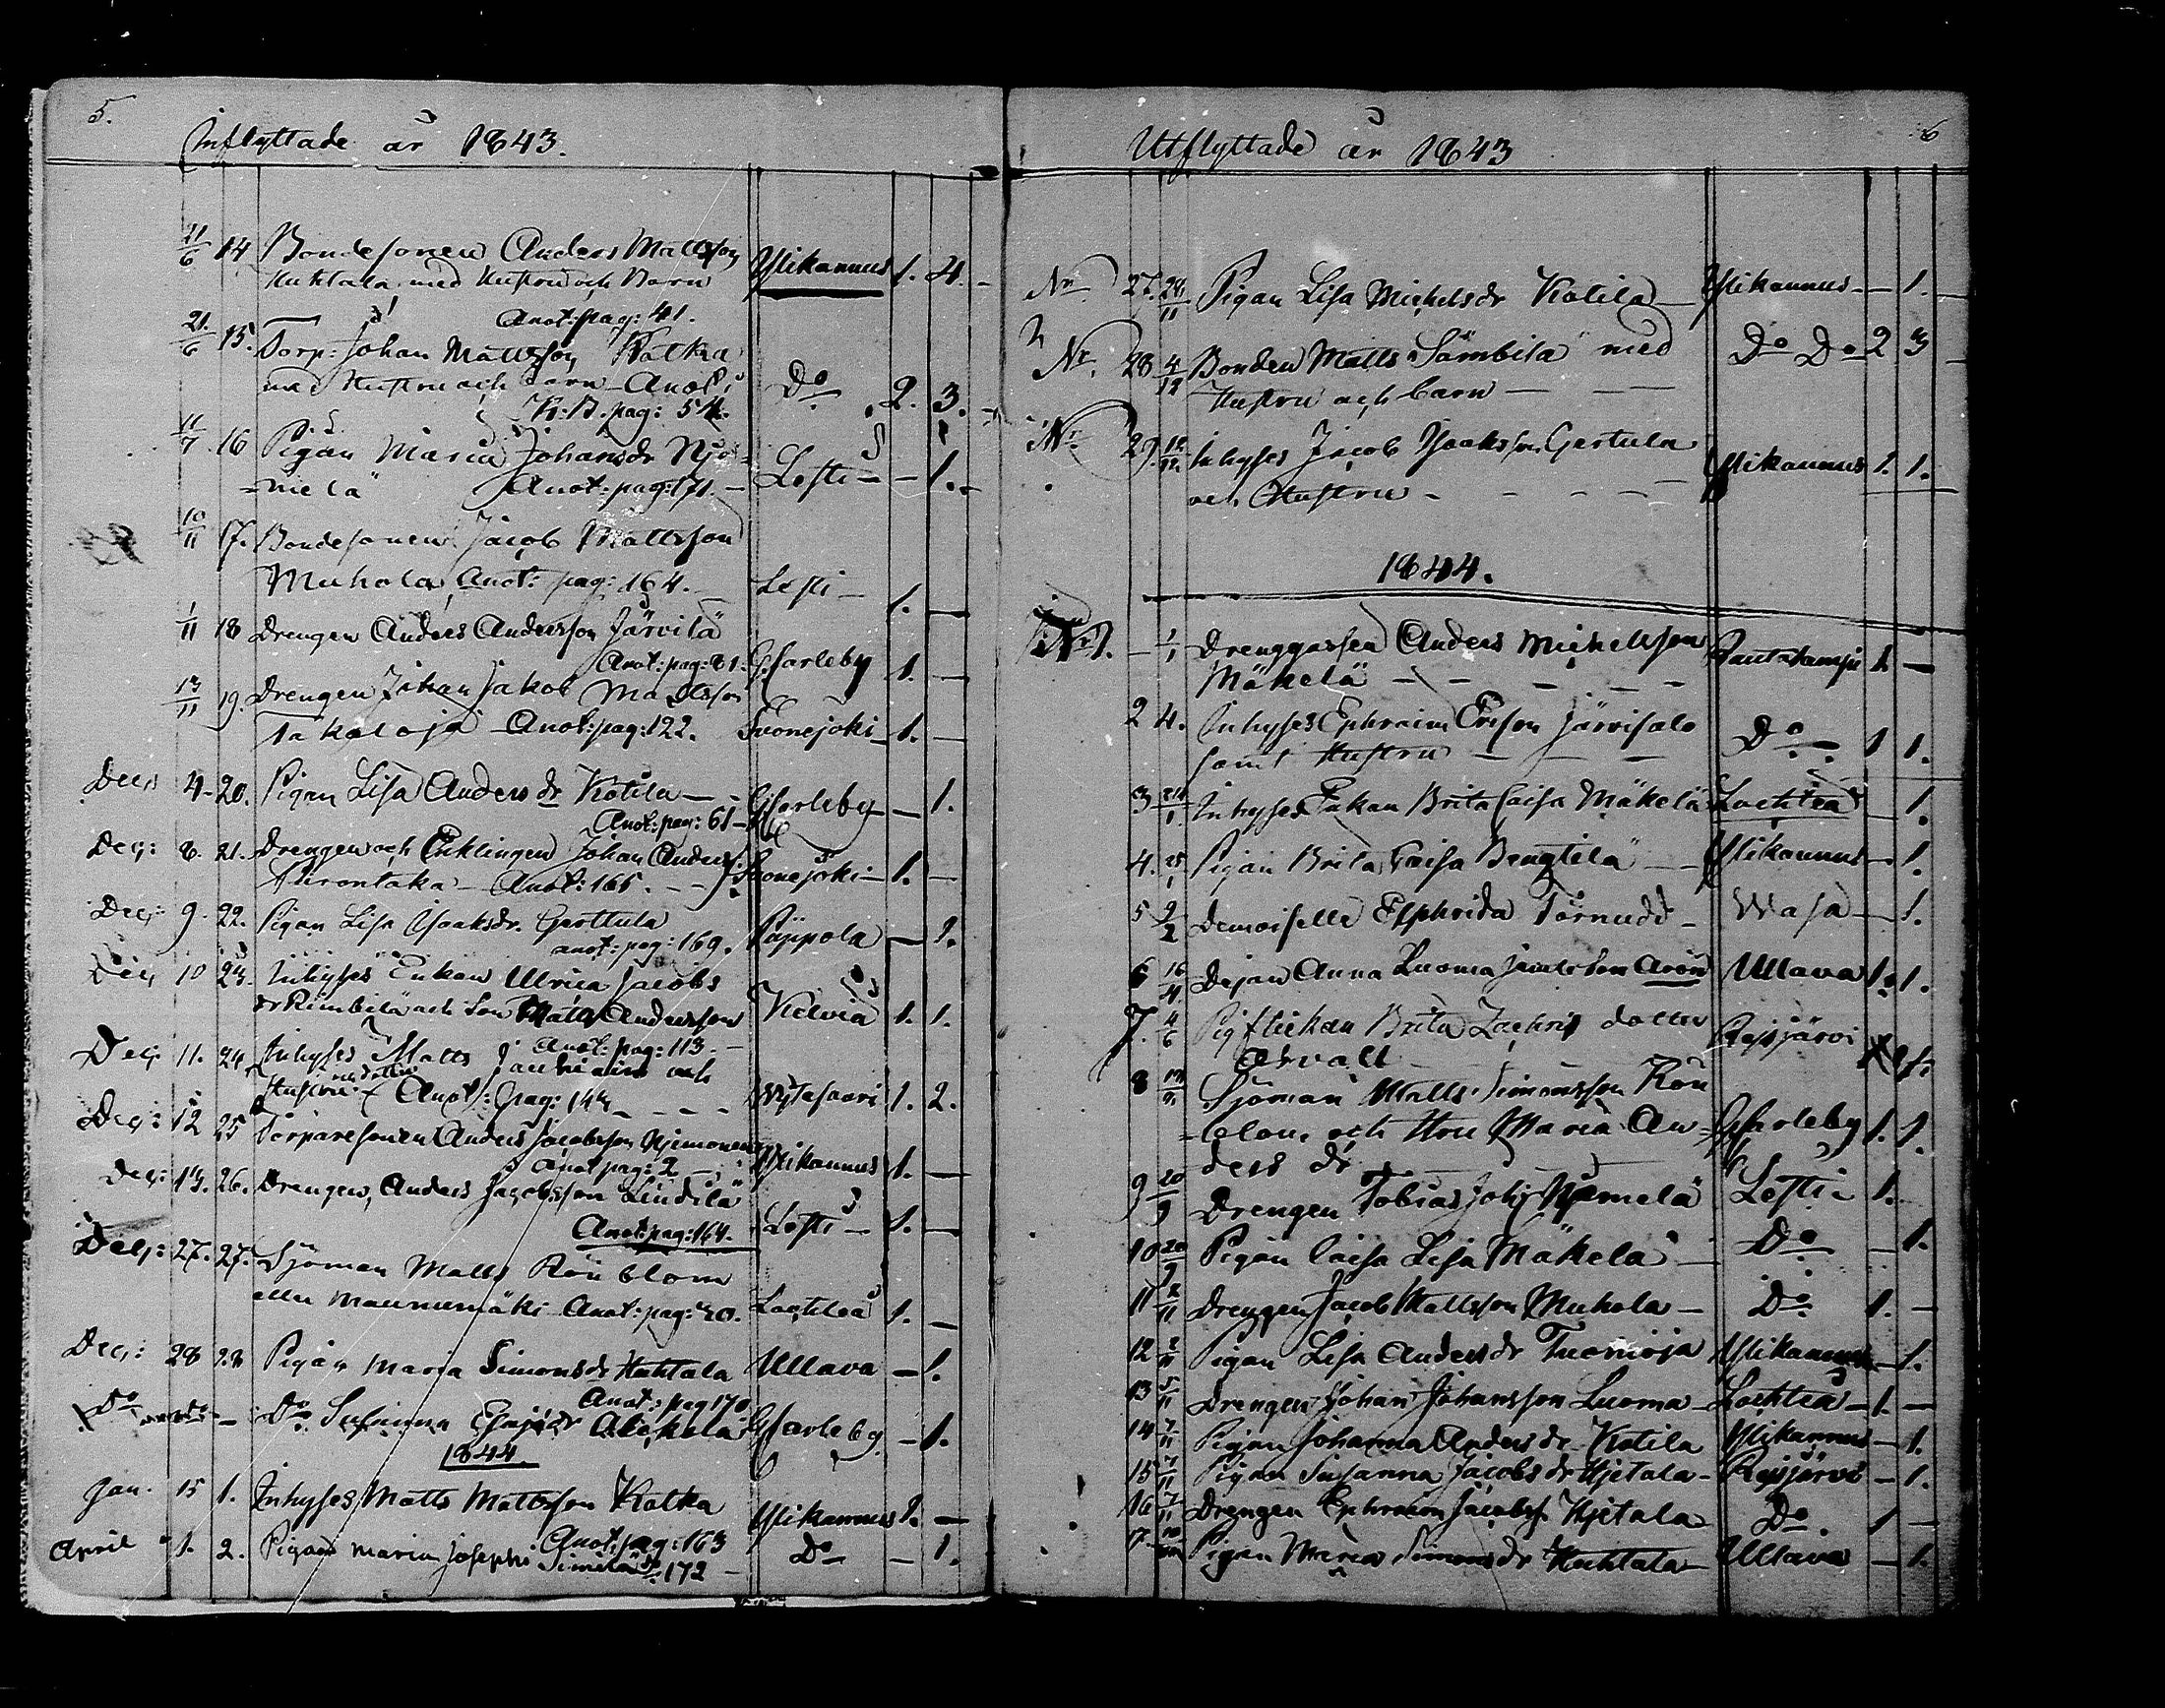 5.
Inflyttade år 1843.
21/6 14 Bondesonen Anders Mattsson
Huhtala med Hustru och Barn Ylikannus 1. 4. -
Anot: pag: 41.
21/6 15. Torp: Johan Mattsson Kalka
med Hustru och Barn Anot: Do 2. 3.
K:B. pag: 54.
11/7 16 Pigan Maria Johansdr Nje-
melä Anot: pag: 171. Lesti - 1.
10/11 17. Bondesonen Jacob Mattsson
Muhola Anot: pag: 164. Lesti - 1. -
1/11 18 Drengen Anders Andersson Järvilä
Anot: pag: 81. Gkarleby 1. -
13/11 19. Drengen Johan Jakob Mattsson
Takaloja Anot: pag: 122. 1. -
Dec: 4 20. Pigan Lisa Andersdr Kotila - Gkarleby - 1.
Anot: pag: 61
Dec: 8. 21. Drengen och Enklingen Johan Anders:
Anot: 165. 1. -
Dec: 9. 22. Pigan Lisa Isaaksdr. Gerttula
anot: pag: 169. - 1.
Dec: 10 23. Inhyses Enkan Ulrica Jacobs
dr Rimbilä och Son Matts Andersson Kelviå 1. 1.
Anot: pag: 113.
Dec: 11. 24. Inhyses Matts Janhiain och
Hustru Anot: pag: 144 Wijtasaari 1. 2.
Dec: 12 25 Torparesonen Anders Jacobsson Njemonen
Anot pag: 2 Ylikannus 1. -
Dec: 13. 26. Drengen Anders Jacobsson Lindilä
Anot: pag: 164. Lesti - 1. -
Dec: 27. 27. Sjöman Matts Rönblom
eller Maunumäki Anot: pag: 30. Lochteå 1. -
Dec: 28 28 Pigan Maria Simonsdr Huhtala Ullava - 1.
Anot: pag 170
Do Do - Do Susanna Alekelä Gkarleby - 1.
1844.
Jan. 15 1. Inhyses Matts Mattsson Kalka Ylikannus 1. -
Anot: pag: 163
April 1. 2. Pigan Maria Josephs Similä Do 172 Do - 1.
6
Utflyttade år 1843
No 27. 28/11 Pigan Lisa Michelsdr Kotila - Ylikannus - 1.
No 28 4/12 Bonden Matts Sämbilä med Do Do 2 3
Hustru och barn
No 29. 12/12 Inhyses Jacob Isaaksson Gertula
och Hustru - Ylikannus 1. 1.
1844.
No 1. 1/1 Drenggossen Anders Michelsson
Mäkelä Rautalampi 1. -
2 4. Inhyses Ephraim Ericson Järvisalo
samt Hustru Do 1 1.
3 24/1 Inhyses Enkan Brita Caisa Mäkelä Lochteå 1.
4. 25/1 Pigan Brita Caisa Bengtilä - Ylikannus - 1.
5 2/2 Demoiselle Elphrida Törnudd - Wasa - 1.
6 16/4 Anna Luoma Ullava 1. 1.
7. 4/6 Pigflickan Brita Zachris dotter
Ahvall Reisjärvi 1.
8 Sjöman Matts Simonsson Rön-
blom och Hru Maria An- Gkarleby 1. 1.
ders dr
9 20/9 Drengen Tobias Johs Njemelä Lesti 1.
10 20/9 Pigan Caisa Lisa Mäkelä - Do - 1.
11 2/11 Drengen Jacob Mattsson Muhola - Do 1. -
12 2/11 Pigan Lisa Andersdr Tuomioja Ylikannus - 1.
13 5/11 Drengen Johan Johansson Luoma - Lochteå - 1. -
14 7/11 Pigan Johanna Andersdr Kotila Ylikannus - 1.
15 7/11 Pigan Susanna Jacobsdr Hjetala - Reisjärvi - 1.
16 7/11 Drengen Ephraim Jacobss. Hjetala Do 1 -
17. Pigan Maria Simonsdr Huhtala - Ullava - 1.